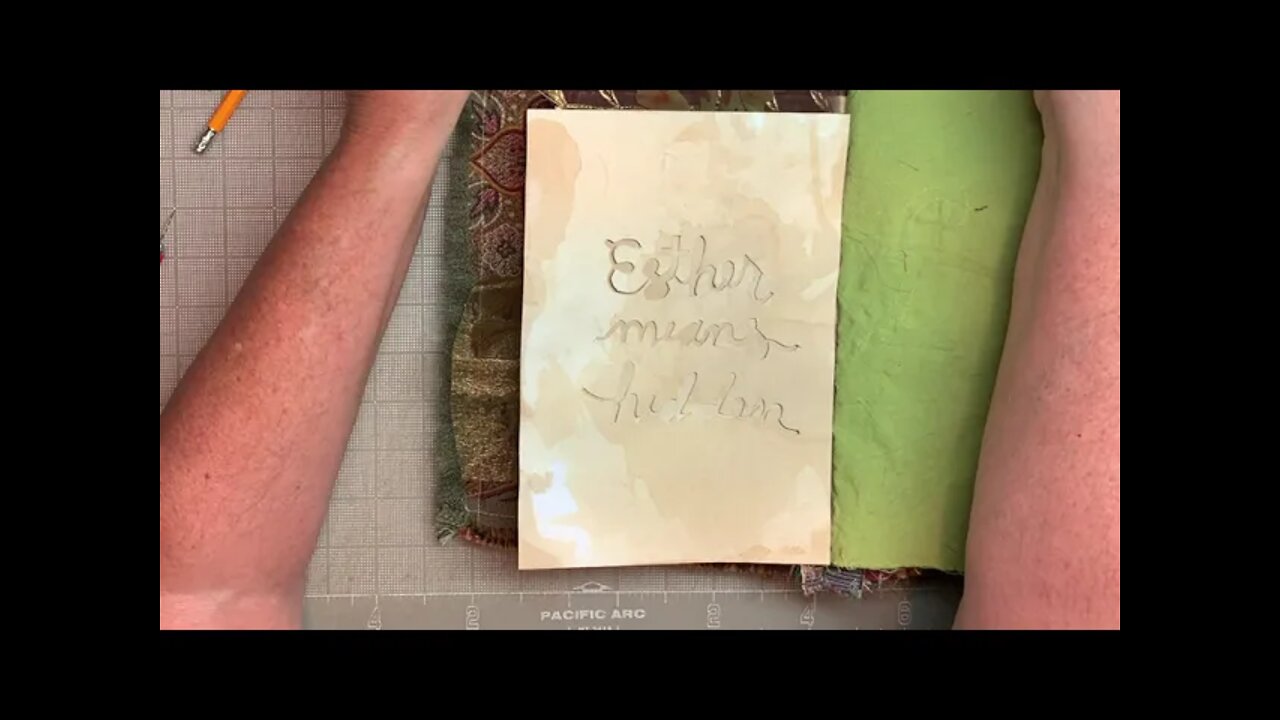 Esther
means
hidden
PACIFIC ARC
2
2
4
6